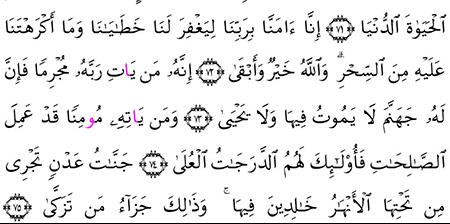 الْحَيَوٰةَ الدُّنْيَا ۝٧١ إِنَّا ءَامَنَّا بِرَبِّنَا لِيَغْفِرَ لَنَا خَطَٰيَٰنَا وَمَا أَكْرَهْتَنَا
عَلَيْهِ مِنَ السِّحْرِ ۗ وَاللَّهُ خَيْرٌ وَأَبْقَىٰ ۝٧٢ إِنَّهُۥ مَن يَاتِ رَبَّهُۥ مُجْرِمًا فَإِنَّ
لَهُۥ جَهَنَّمَ لَا يَمُوتُ فِيهَا وَلَا يَحْيَىٰ ۝٧٣ وَمَن يَاتِهِۦ مُومِنًا قَدْ عَمِلَ
الصَّٰلِحَٰتِ فَأُوْلَٰٓئِكَ لَهُمُ الدَّرَجَٰتُ الْعُلَىٰ ۝٧٤ جَنَّٰتُ عَدْنٍ تَجْرِى
مِن تَحْتِهَا الْأَنْهَٰرُ خَٰلِدِينَ فِيهَا ۚ وَذَٰلِكَ جَزَآءُ مَن تَزَكَّىٰ ۝٧٥